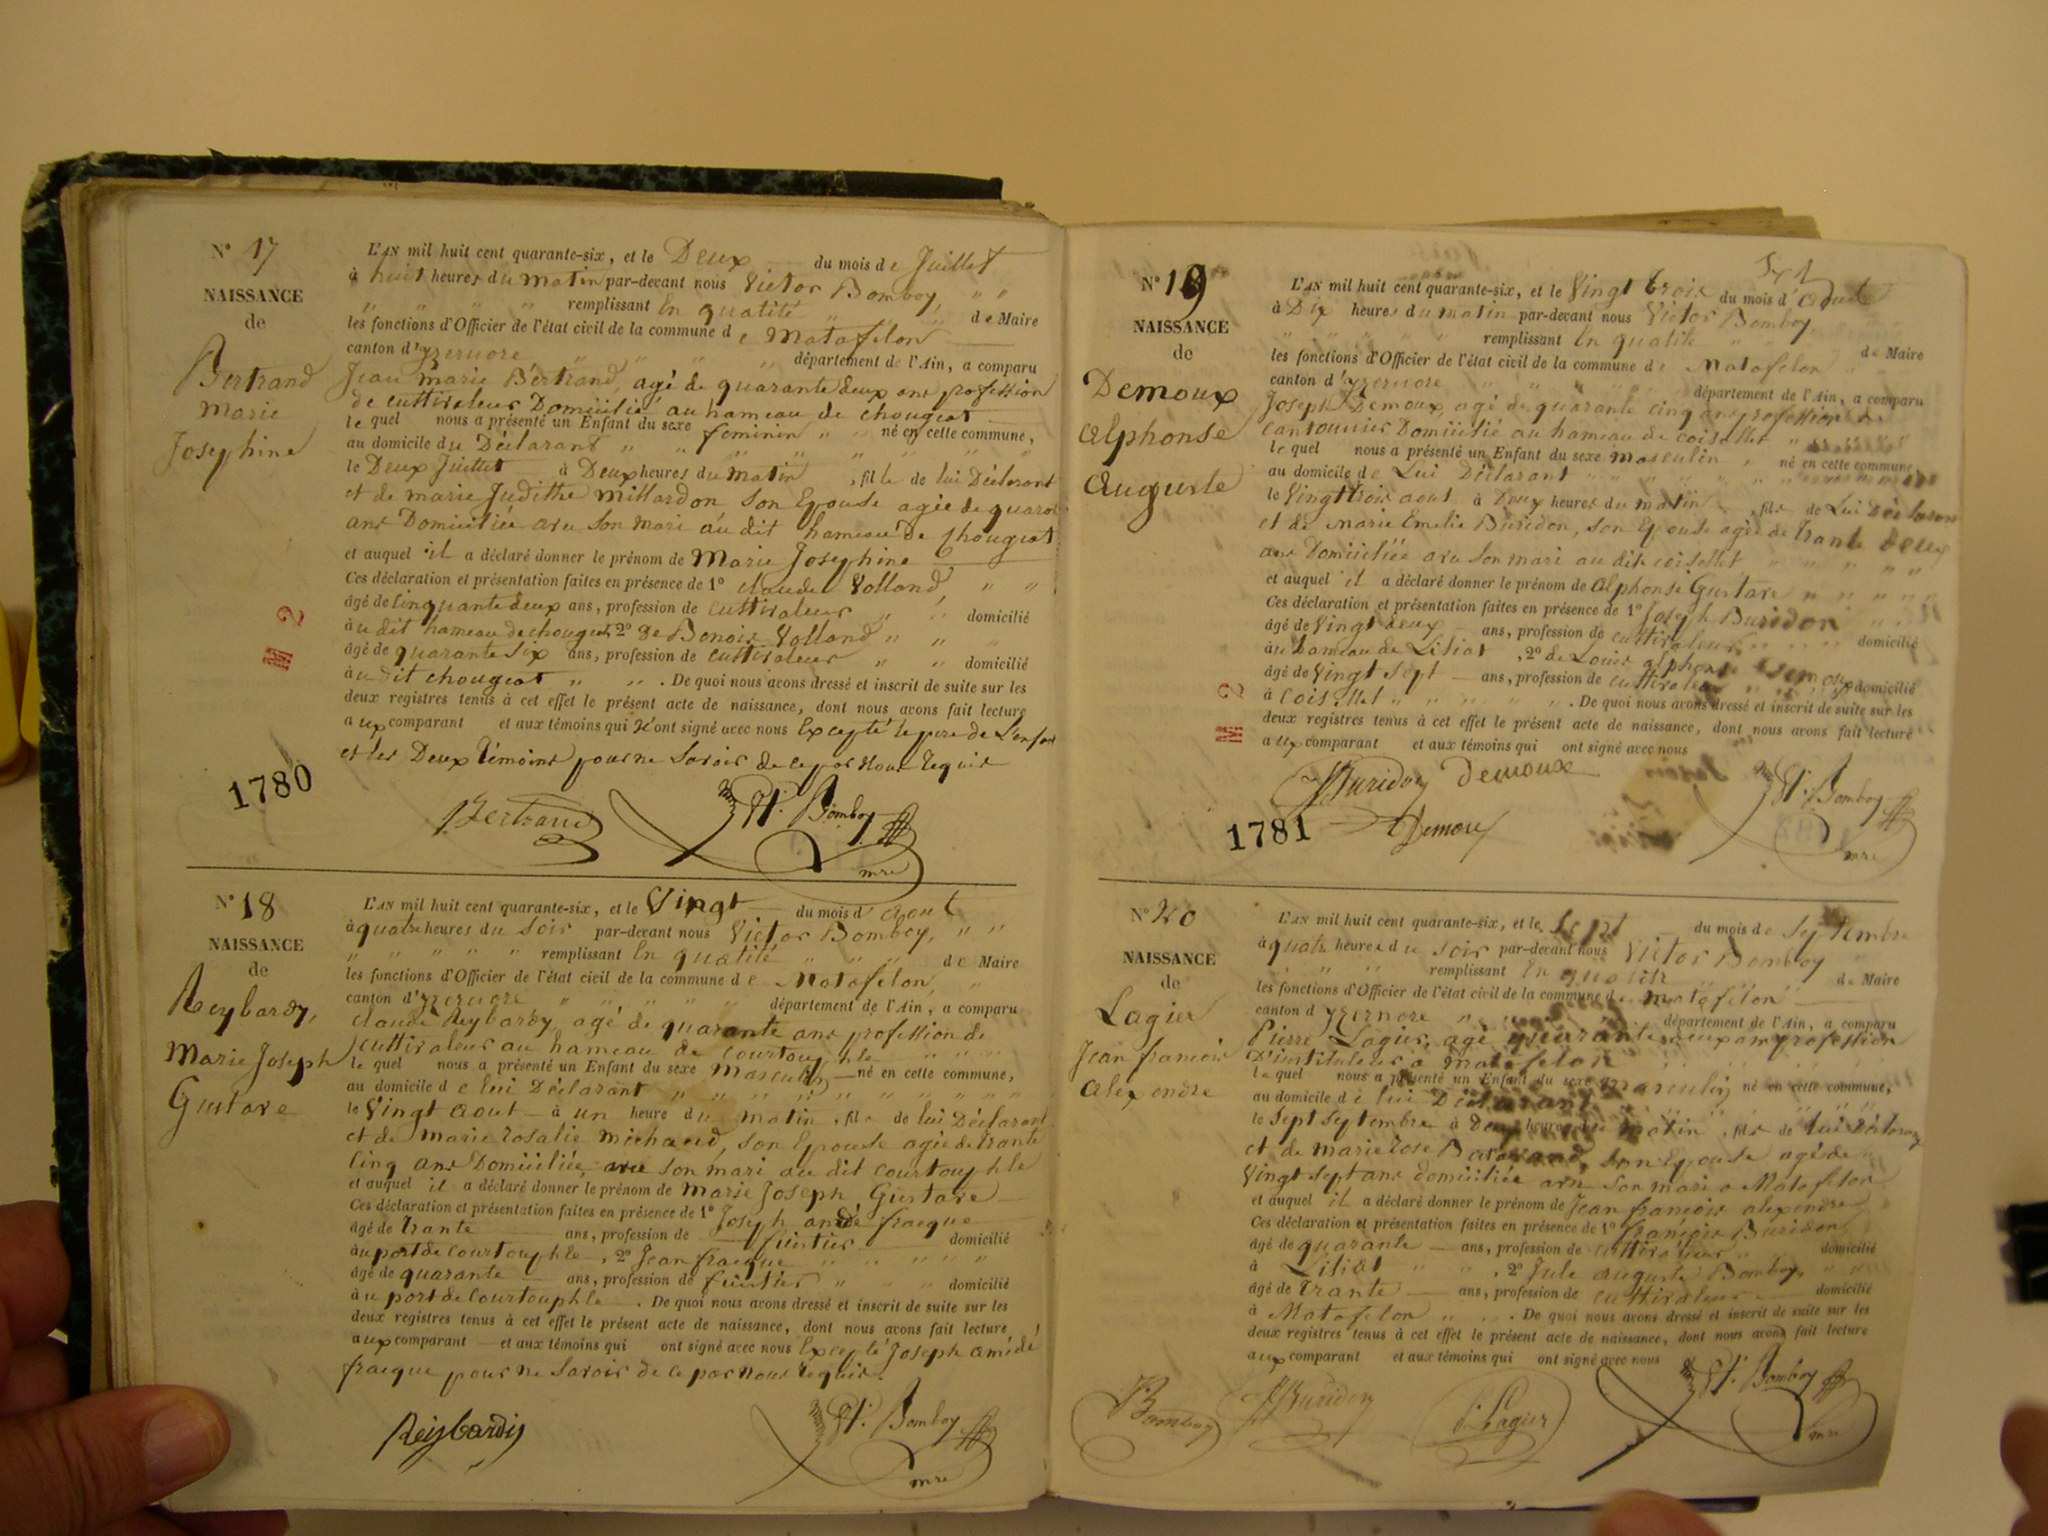 N° 17
NAISSANCE
de
Bertrand
Marie
Josephine
L'AN mil huit cent quarante-six, et le Deux du mois de Juillet
à huit heures du matin par-devant nous Victor Bomboy, " "
" " " " remplissant En qualité " " " de Maire
les fonctions d'Officier de l'état civil de la commune de Matafelon
canton d'yzernore " " " " département de l'Ain, a comparu
Jean marie Bertrand, agé de quarante deux ans profession
de cultivateur Domicilié au hameau de chougeat
le quel nous a présenté un Enfant du sexe feminin " " né en cette commune,
au domicile du Déclarant " " " " " "
le Deux Juillet à Deux heures du matin , fille de lui Déclarant
et de marie Judithe millardon son Epouse agée de quarante
ans Domiciliée avec son mari au dit hameau De chougeat
et auquel il a déclaré donner le prénom de Marie Josephine
Ces déclaration et présentation faites en présence de 1° claude Volland, " "
âgé de Cinquante deux ans, profession de cultivateur " " domicilié
à u dit hameau de chougeat, 2° de Benoit Volland " " "
âgé de quarante six ans, profession de cultivateur " " domicilié
à u dit chougeat " " . De quoi nous avons dressé et inscrit de suite sur les
deux registres tenus à cet effet le présent acte de naissance, dont nous avons fait lecture
a ux comparant et aux témoins qui N'ont signé avec nous Excepté le pere de L'enfant
et les Deux témoins pour ne Savoir de ce par Nous Requis
1780
Bertrand
Vr. Bomboy
mre
N° 18
NAISSANCE
de
Reybardy,
Marie Joseph
Gustave
L'AN mil huit cent quarante-six, et le Vingt du mois d'aout
à quatre heures du soir par-devant nous Victor Bomboy, " "
" " " " " remplissant En qualité " " " de Maire
les fonctions d'Officier de l'état civil de la commune de Matafelon, "
canton d'yzernore " " " " " département de l'Ain, a comparu
claude Reybardy agé de quarante ans profession de
cultivateur au hameau de courtouphle " " " "
le quel nous a présenté un Enfant du sexe masculin né en cette commune,
au domicile de lui Déclarant " " " " " " "
le Vingt aout à un heure du matin , fils de lui Déclarant
et de marie rosalie michaud, son Epouse agée de trante
Cinq ans Domiciliée avec son mari au dit courtouphle
et auquel il a déclaré donner le prénom de marie Joseph Gustave
Ces déclaration et présentation faites en présence de 1° Joseph fracque
âgé de trante ans, profession de domicilié
à u port de courtouphle , 2° Jean fracque " " " " "
âgé de quarante ans, profession de " " " domicilié
à u port de Courtouphle . De quoi nous avons dressé et inscrit de suite sur les
deux registres tenus à cet effet le présent acte de naissance, dont nous avons fait lecture
a ux comparant et aux témoins qui ont signé avec nous Excepté Joseph amédé
fracque pour ne Savoir de ce par Nous Requis.
Reybardy
Vr. Bomboy
mre
N° 19
NAISSANCE
de
Demoux
Alphonse
Auguste
L'AN mil huit cent quarante-six, et le Vingt trois du mois d'aout
à Dix heures du matin par-devant nous Victor Bomboy,
" " " " remplissant En qualité " " " de Maire
les fonctions d'Officier de l'état civil de la commune de Matafelon "
canton d'yzernore " " " " département de l'Ain, a comparu
Joseph Demoux, agé de quarante cinq ans profession de
Cantonnier Domicilié au hameau de coisellet " "
le quel nous a présenté un Enfant du sexe masculin , né en cette commune,
au domicile de Lui Déclarant " " " " " "
le Vingt trois aout à Deux heures du matin , fils de Lui Déclarant
et de Marie Emelie Buridon, son Epouse agée de trante deux
ans Domiciliée avec Son mari au dit coisellet " " " "
et auquel il a déclaré donner le prénom de alphonse Gustave " " " "
Ces déclaration et présentation faites en présence de 1° Joseph Buridon
âgé de Vingt deux ans, profession de cultivateur " " " domicilié
à u hameau de Lisiat , 2° de Louis alphonse Demoux
âgé de Vingt Sept ans, profession de cultivateur " " domicilié
à Coisellet " " " " " . De quoi nous avons dressé et inscrit de suite sur les
deux registres tenus à cet effet le présent acte de naissance, dont nous avons fait lecture
a ux comparant et aux témoins qui ont signé avec nous
Buridon Demoux
1781
Demoux
Vr. Bomboy
mre
N° 20
NAISSANCE
de
Lagier
Jean francois
Alexendre
L'AN mil huit cent quarante-six, et le Sept du mois de Septembre
à quatre heures du soir par-devant nous Victor Bomboy "
" " " " remplissant En qualité " de Maire
les fonctions d'Officier de l'état civil de la commune de matafelon
canton d yzernore " " département de l'Ain, a comparu
Pierre Lagier, agé quarante deux ans profession
D'instituteur a matafelon
le quel nous a présenté un Enfant du sexe masculin né en cette commune,
au domicile de lui Déclarant " " " " "
le Sept Septembre à heures du matin , fils de lui Déclarant
et de marie rose son Epouse agée de
Vingt sept ans domiciliée avec son mari a Matafelon
et auquel il a déclaré donner le prénom de Jean francois alexendre
Ces déclaration et présentation faites en présence de 1° françois Buridon
âgé de quarante ans, profession de cultivateur " domicilié
à Lisiat " " , 2° Jule auguste Bomboy, " "
âgé de trante ans, profession de cultivateur domicilié
à Matafelon " , . De quoi nous avons dressé et inscrit de suite sur les
deux registres tenus à cet effet le présent acte de naissance, dont nous avons fait lecture
a ux comparant et aux témoins qui ont signé avec nous
Bomboy Buridon P. Lagier Vr. Bomboy
mre